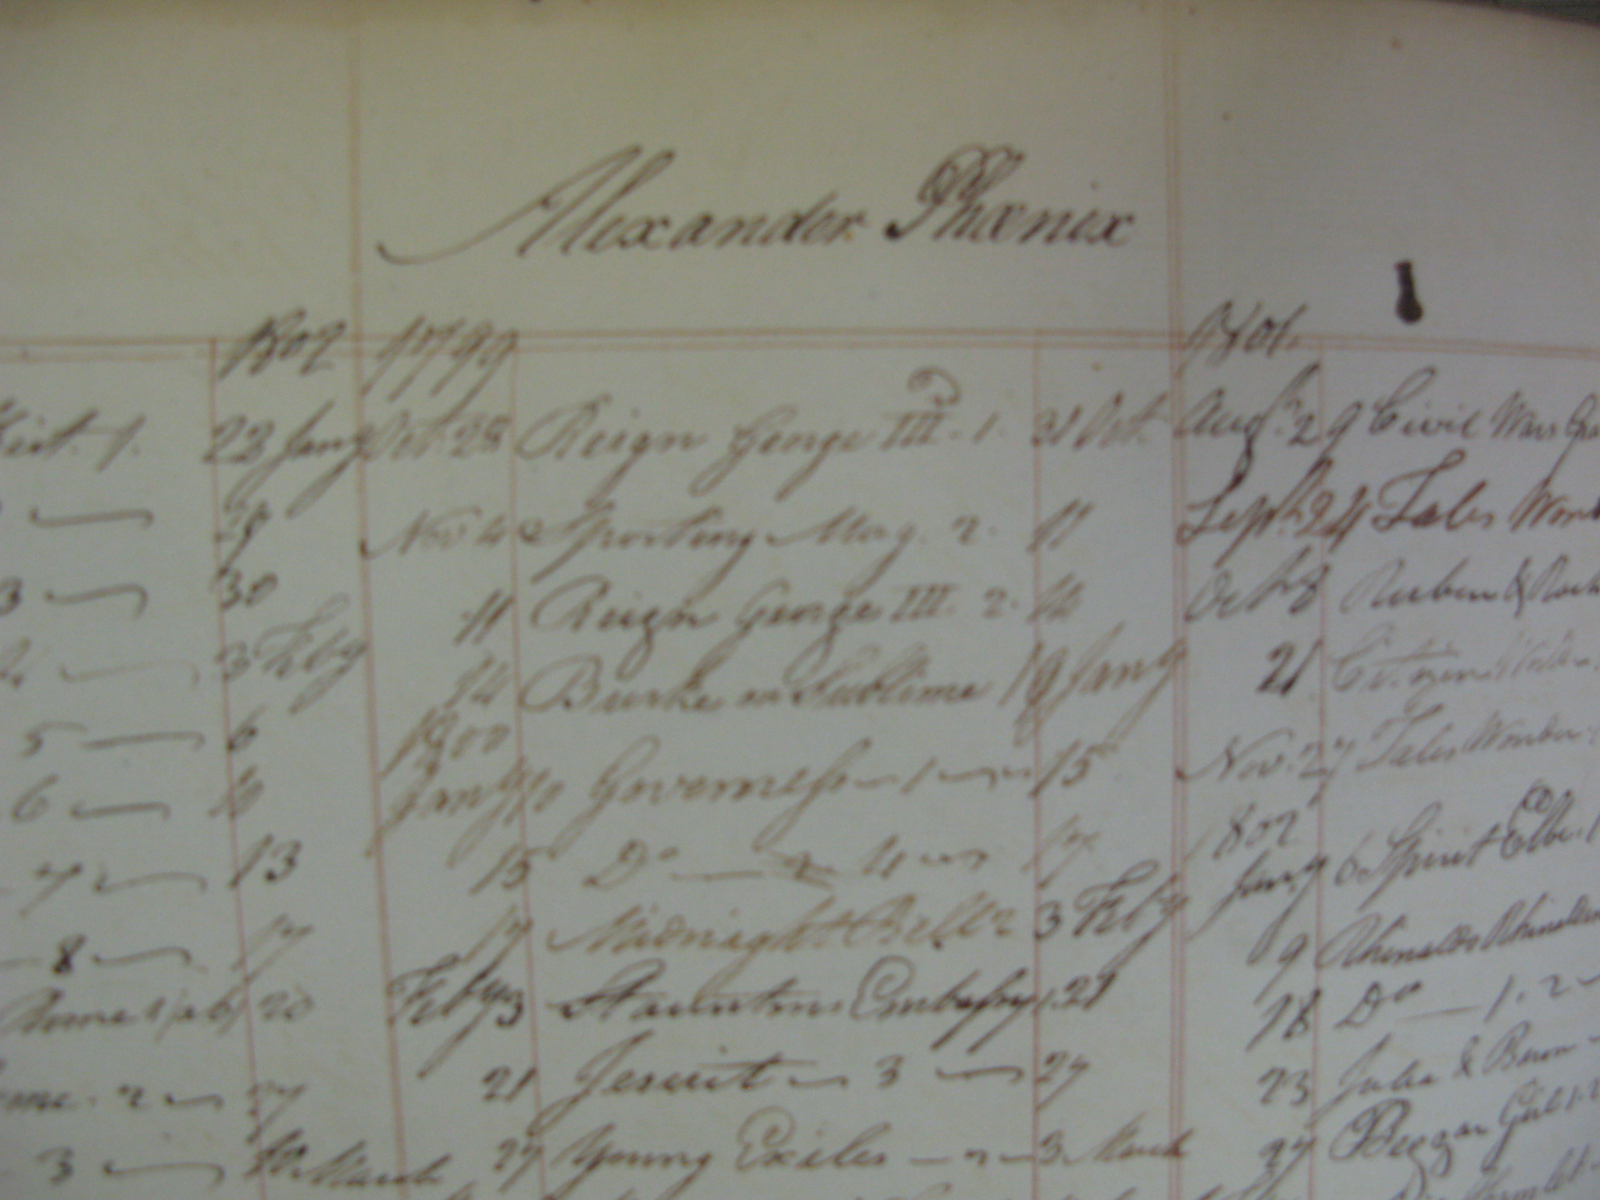 Alexander Phœnix
1802 1799 1801.
1. 22 Jany Oct. 28 Reign George III - 1. 31 Oct. Augt. 29 Civil Wars
Nov 4 Sporting Mag. 2. 11 Septr 24 Tales Wond
3 30 11 Reign George III. 2. 14 Octr 8 Ruben & Rach
3 Feby 14 Burke on Sublime 19 Jany 21 Citizen
5 6 1800
Jany 10 Governess - 1 15 Nov. 27 Tales Wonder
6 10 1802
7 13 15 Do 4 17 Jany 6 Spirit Elbe
8 17 17 Midnight Bell 2 3 Feby 9 Rhinaldo Rhinaldin
20 Feby 3 Stauntons Embassy 1. 21 18 Do 1. 2
2 27 21 Jesuit 3 27 23 Julia & Baron
3 10 March 27 Young Exiles 3 March 27 Beggar Girl 1.2